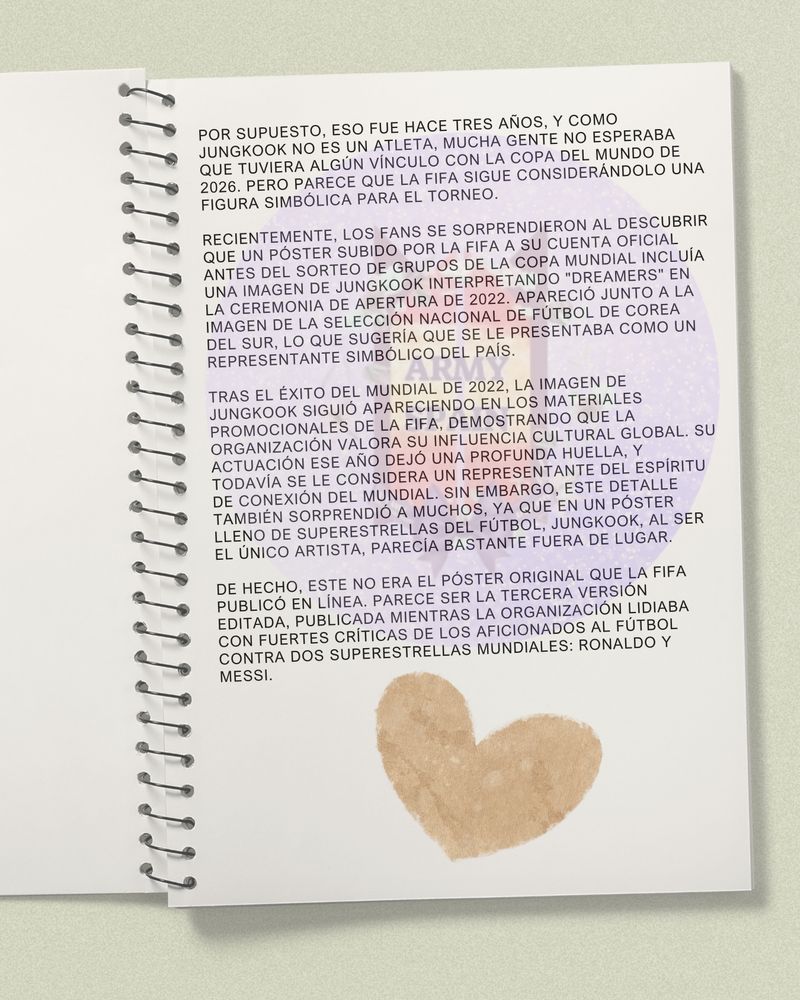 POR SUPUESTO, ESO FUE HACE TRES AÑOS, Y COMO
JUNGKOOK NO ES UN ATLETA, MUCHA GENTE NO ESPERABA
QUE TUVIERA ALGÚN VÍNCULO CON LA COPA DEL MUNDO DE
2026. PERO PARECE QUE LA FIFA SIGUE CONSIDERÁNDOLO UNA
FIGURA SIMBÓLICA PARA EL TORNEO.
RECIENTEMENTE, LOS FANS SE SORPRENDIERON AL DESCUBRIR
QUE UN PÓSTER SUBIDO POR LA FIFA A SU CUENTA OFICIAL
ANTES DEL SORTEO DE GRUPOS DE LA COPA MUNDIAL INCLUÍA
UNA IMAGEN DE JUNGKOOK INTERPRETANDO "DREAMERS" EN
LA CEREMONIA DE APERTURA DE 2022. APARECIÓ JUNTO A LA
IMAGEN DE LA SELECCIÓN NACIONAL DE FÚTBOL DE COREA
DEL SUR, LO QUE SUGERÍA QUE SE LE PRESENTABA COMO UN
REPRESENTANTE SIMBÓLICO DEL PAÍS.
ARMY
TRAS EL ÉXITO DEL MUNDIAL DE 2022, LA IMAGEN DE
JUNGKOOK SIGUIÓ APARECIENDO EN LOS MATERIALES
PROMOCIONALES DE LA FIFA, DEMOSTRANDO QUE LA
ORGANIZACIÓN VALORA SU INFLUENCIA CULTURAL GLOBAL. SU
ACTUACIÓN ESE AÑO DEJÓ UNA PROFUNDA HUELLA, Y
TODAVÍA SE LE CONSIDERA UN REPRESENTANTE DEL ESPÍRITU
DE CONEXIÓN DEL MUNDIAL. SIN EMBARGO, ESTE DETALLE
TAMBIÉN SORPRENDIÓ A MUCHOS, YA QUE EN UN PÓSTER
LLENO DE SUPERESTRELLAS DEL FÚTBOL, JUNGKOOK, AL SER
EL ÚNICO ARTISTA, PARECÍA BASTANTE FUERA DE LUGAR.
DE HECHO, ESTE NO ERA EL PÓSTER ORIGINAL QUE LA FIFA
PUBLICÓ EN LÍNEA. PARECE SER LA TERCERA VERSIÓN
EDITADA, PUBLICADA MIENTRAS LA ORGANIZACIÓN LIDIABA
CON FUERTES CRÍTICAS DE LOS AFICIONADOS AL FÚTBOL
CONTRA DOS SUPERESTRELLAS MUNDIALES: RONALDO Y
MESSI.